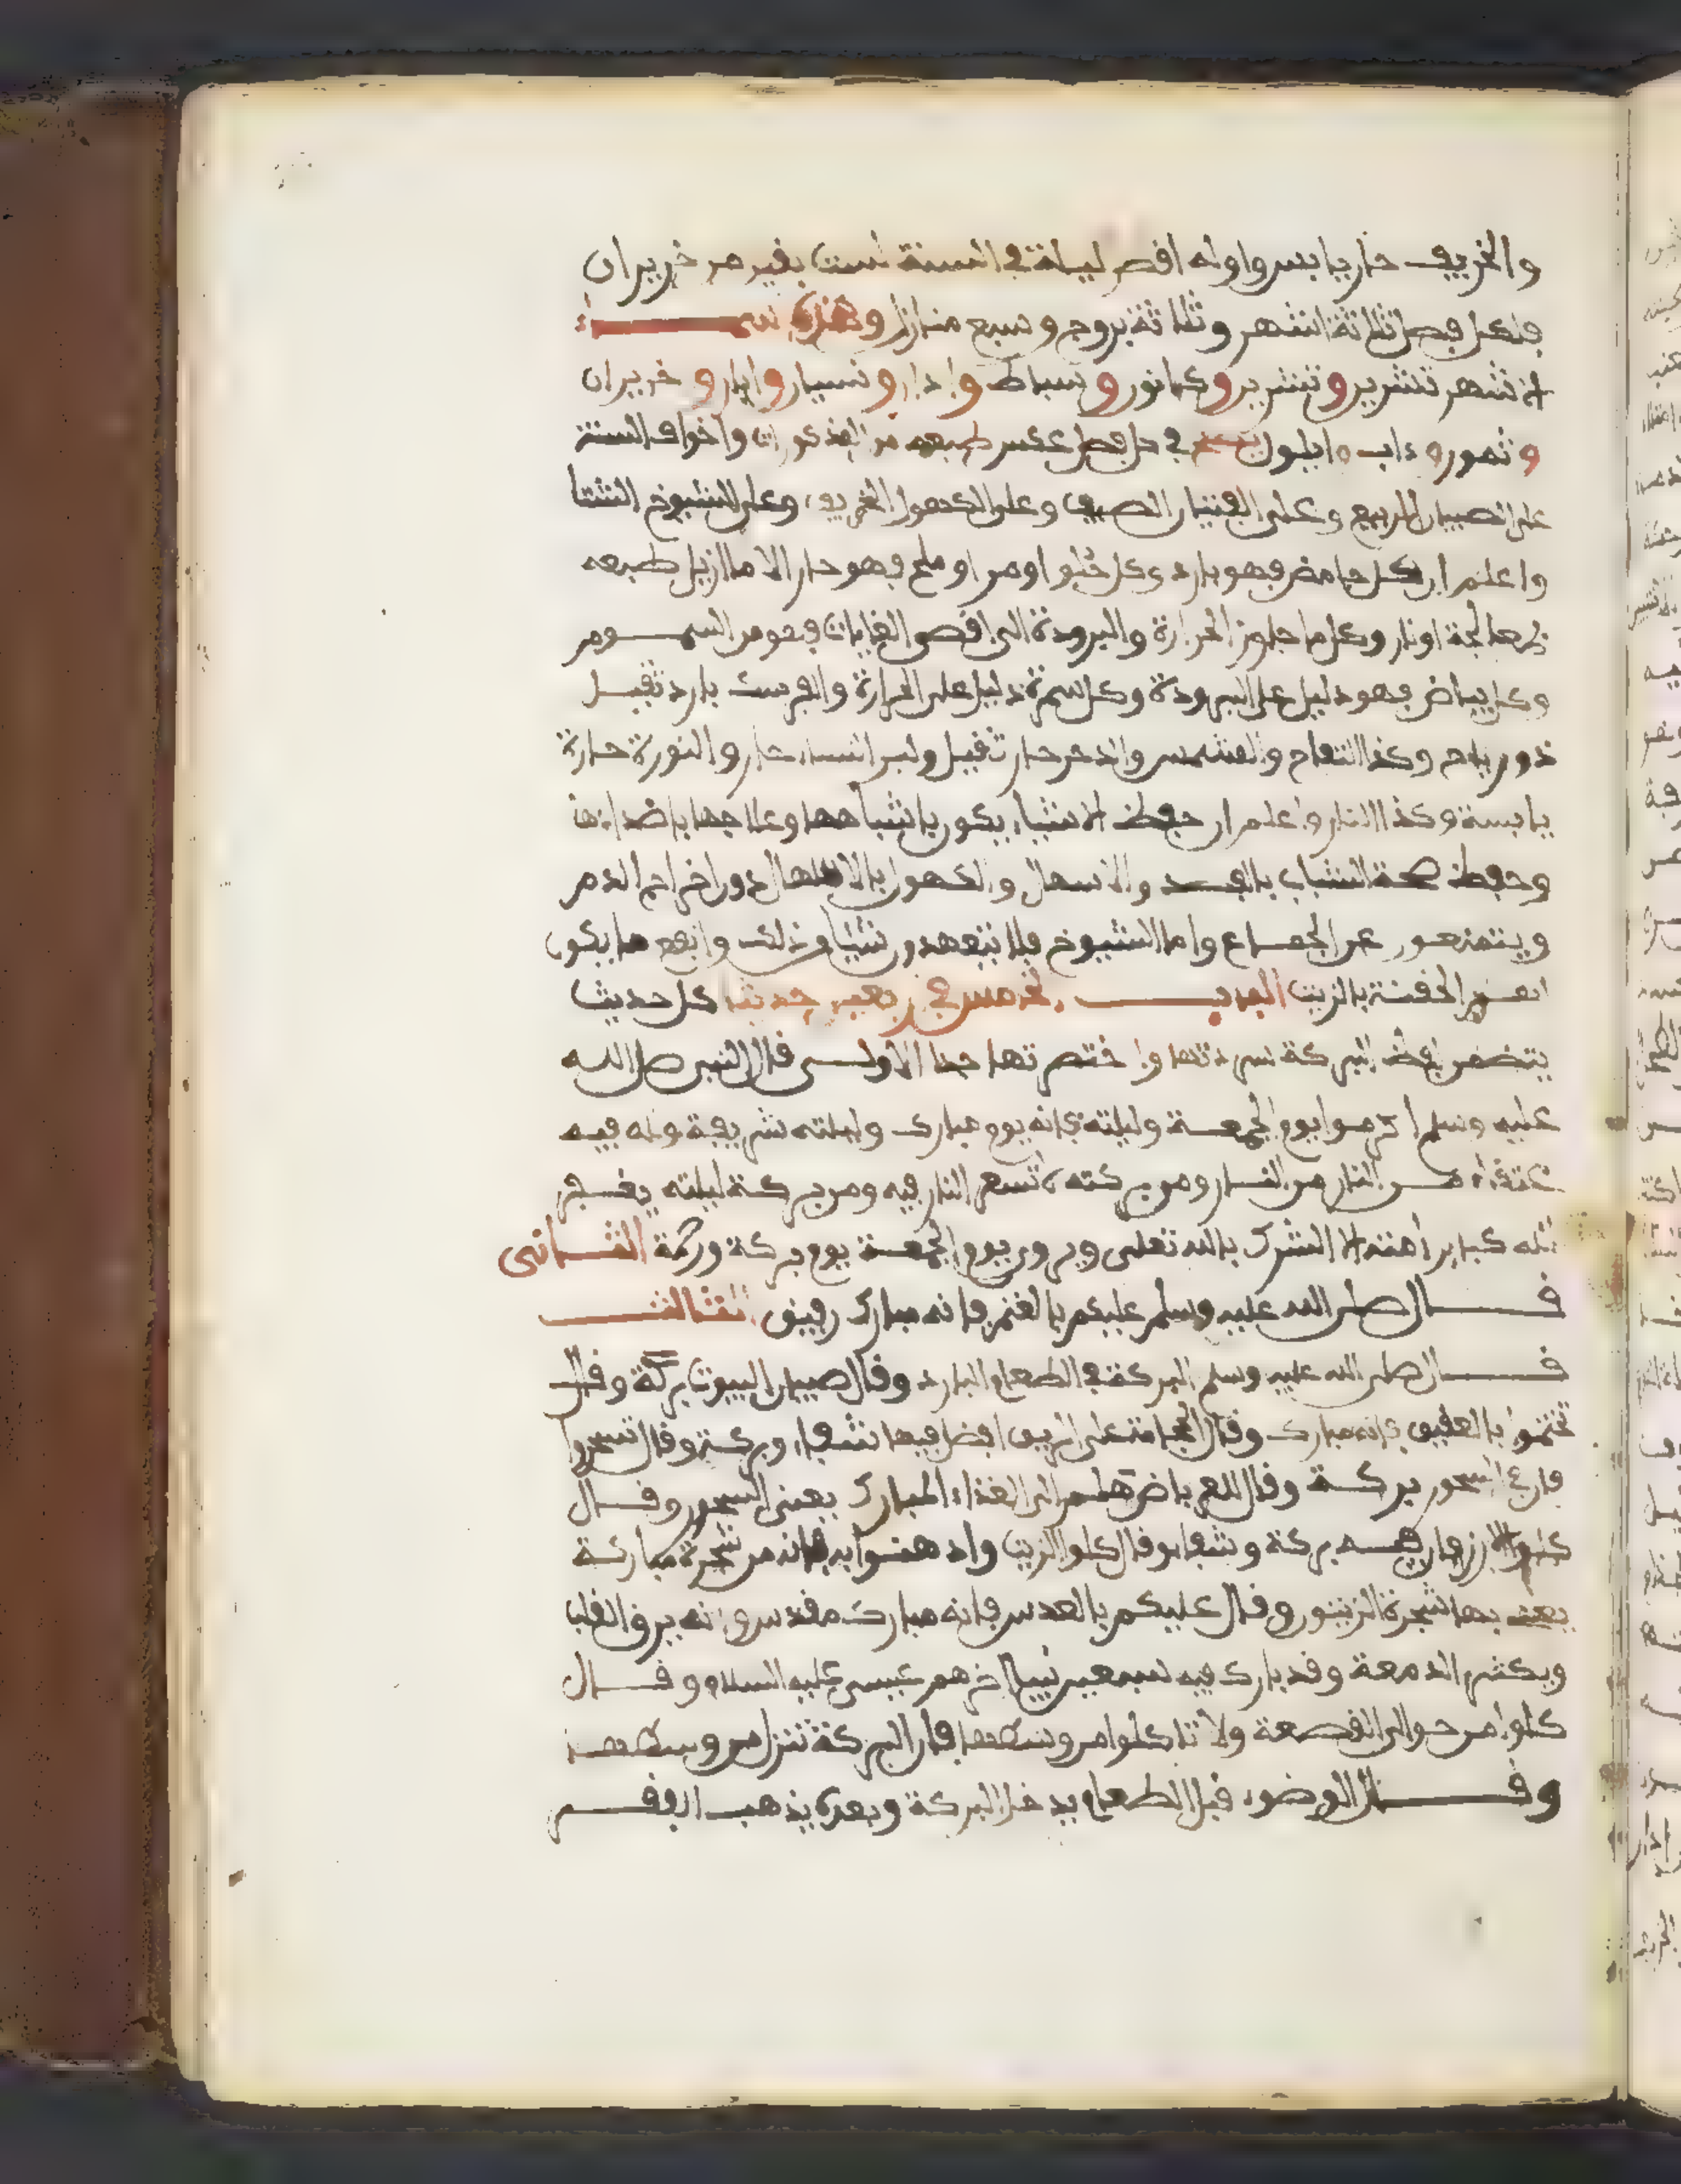 والخريف حار يابس واوله اقصر ليلة في السنة لست بقين من حزيران
فلكل فصل ثلاثة اشهر وثلاثة بروج وسبع منازل وهذه اسمـــاء
الاشهر تشرين وتشرين وكانون وسباط واذار ونيسان وايار وحزيران
وتموز وءاب وايلول في كل فصل عكس طبعه من المذكورات واخوف السنة
على الصبيان الربيع وعلى الفتيان الصيف وعلى الكهول الخريف وعلى الشيوخ الشتا
واعلم ان كل حامض فهو بارد وكل حلو او مر او ملح فهو حار الا ما ازيل طبعه
بمعالجة او نار وكل ما جاوز الحرارة والبرودة الى اقصى الغايات فهو من السمـوم
وكل بياض فهو دليل على البرودة وكل سمرة دليل على الحرارة والفرسك بارد ثقيـل
ذو رياح وكذا التفاح والمشمس والدخن حار ثقيل ولبن النساء حار والنورة حارة
يابسة وكذا النار واعلم ان حفظ الاشياء يكون باشباهها وعلاجها باضدادها
وحفظ صحة الشباب بالفصد والاسهال والكهول بالاسهال دون اخراج الدم
ويتمنعون عن الجمـاع واما الشيوخ فلا يتعهدون شيئا من ذلك وانفع ما يكون
لهم الحقنة بالزيت البـاب الخامس في اربعين حديثا كل حديث
يتضمن لفظ البركة سردتها واختصرتها جدا الاول قال النبي صلى الله
عليه وسلم اكرموا يوم الجمعـة وليلته فانه يوم مبارك وليلته شريفة ولله فيه
عتقاء مـن النار من النـار ومن بركته لا تسعر النار فيه ومن بركة ليلته يغفـر
الله كباير امته الا الشرك بالله تعلى ويروى يوم الجمعـة يوم بركة ورحمة الثـانى
قـــال صلى الله عليه وسلم عليكم بالغنم فانه مبارك رفيق الثالث
قـــال صلى الله عليه وسلم البركة في الطعام البارد وقال صبيان البيوت بركة وقال
تختموا بالعقيق فانه مبارك وقال الحجامة على الريق افضل فيها شفاء وبركة وقال تسحروا
فان في السحور بركـة وقال للعرباض هلم الى الغذاء المبارك يعنى السحور وقـال
كلوا الارز فان فيـه بركة وشفاء وقال كلوا الزيت وادهنـوا به فانه من شجرة مباركـة
يعنـى بها شجرة الزيتون وقال عليكم بالعدس فانه مبارك مقدس وانه يرق القلب
ويكثر الدمعة وقد بارك فيه سبعين نبيا اخرهم عيسى عليه السلام وقـال
كلوا من حوالى القصعة ولا تاكلوا من وسطها فان البركة تنزل من وسطهـا
وقـــال الوضوء قبل الطعام يدخل البركة وبعده يذهب الفقـر